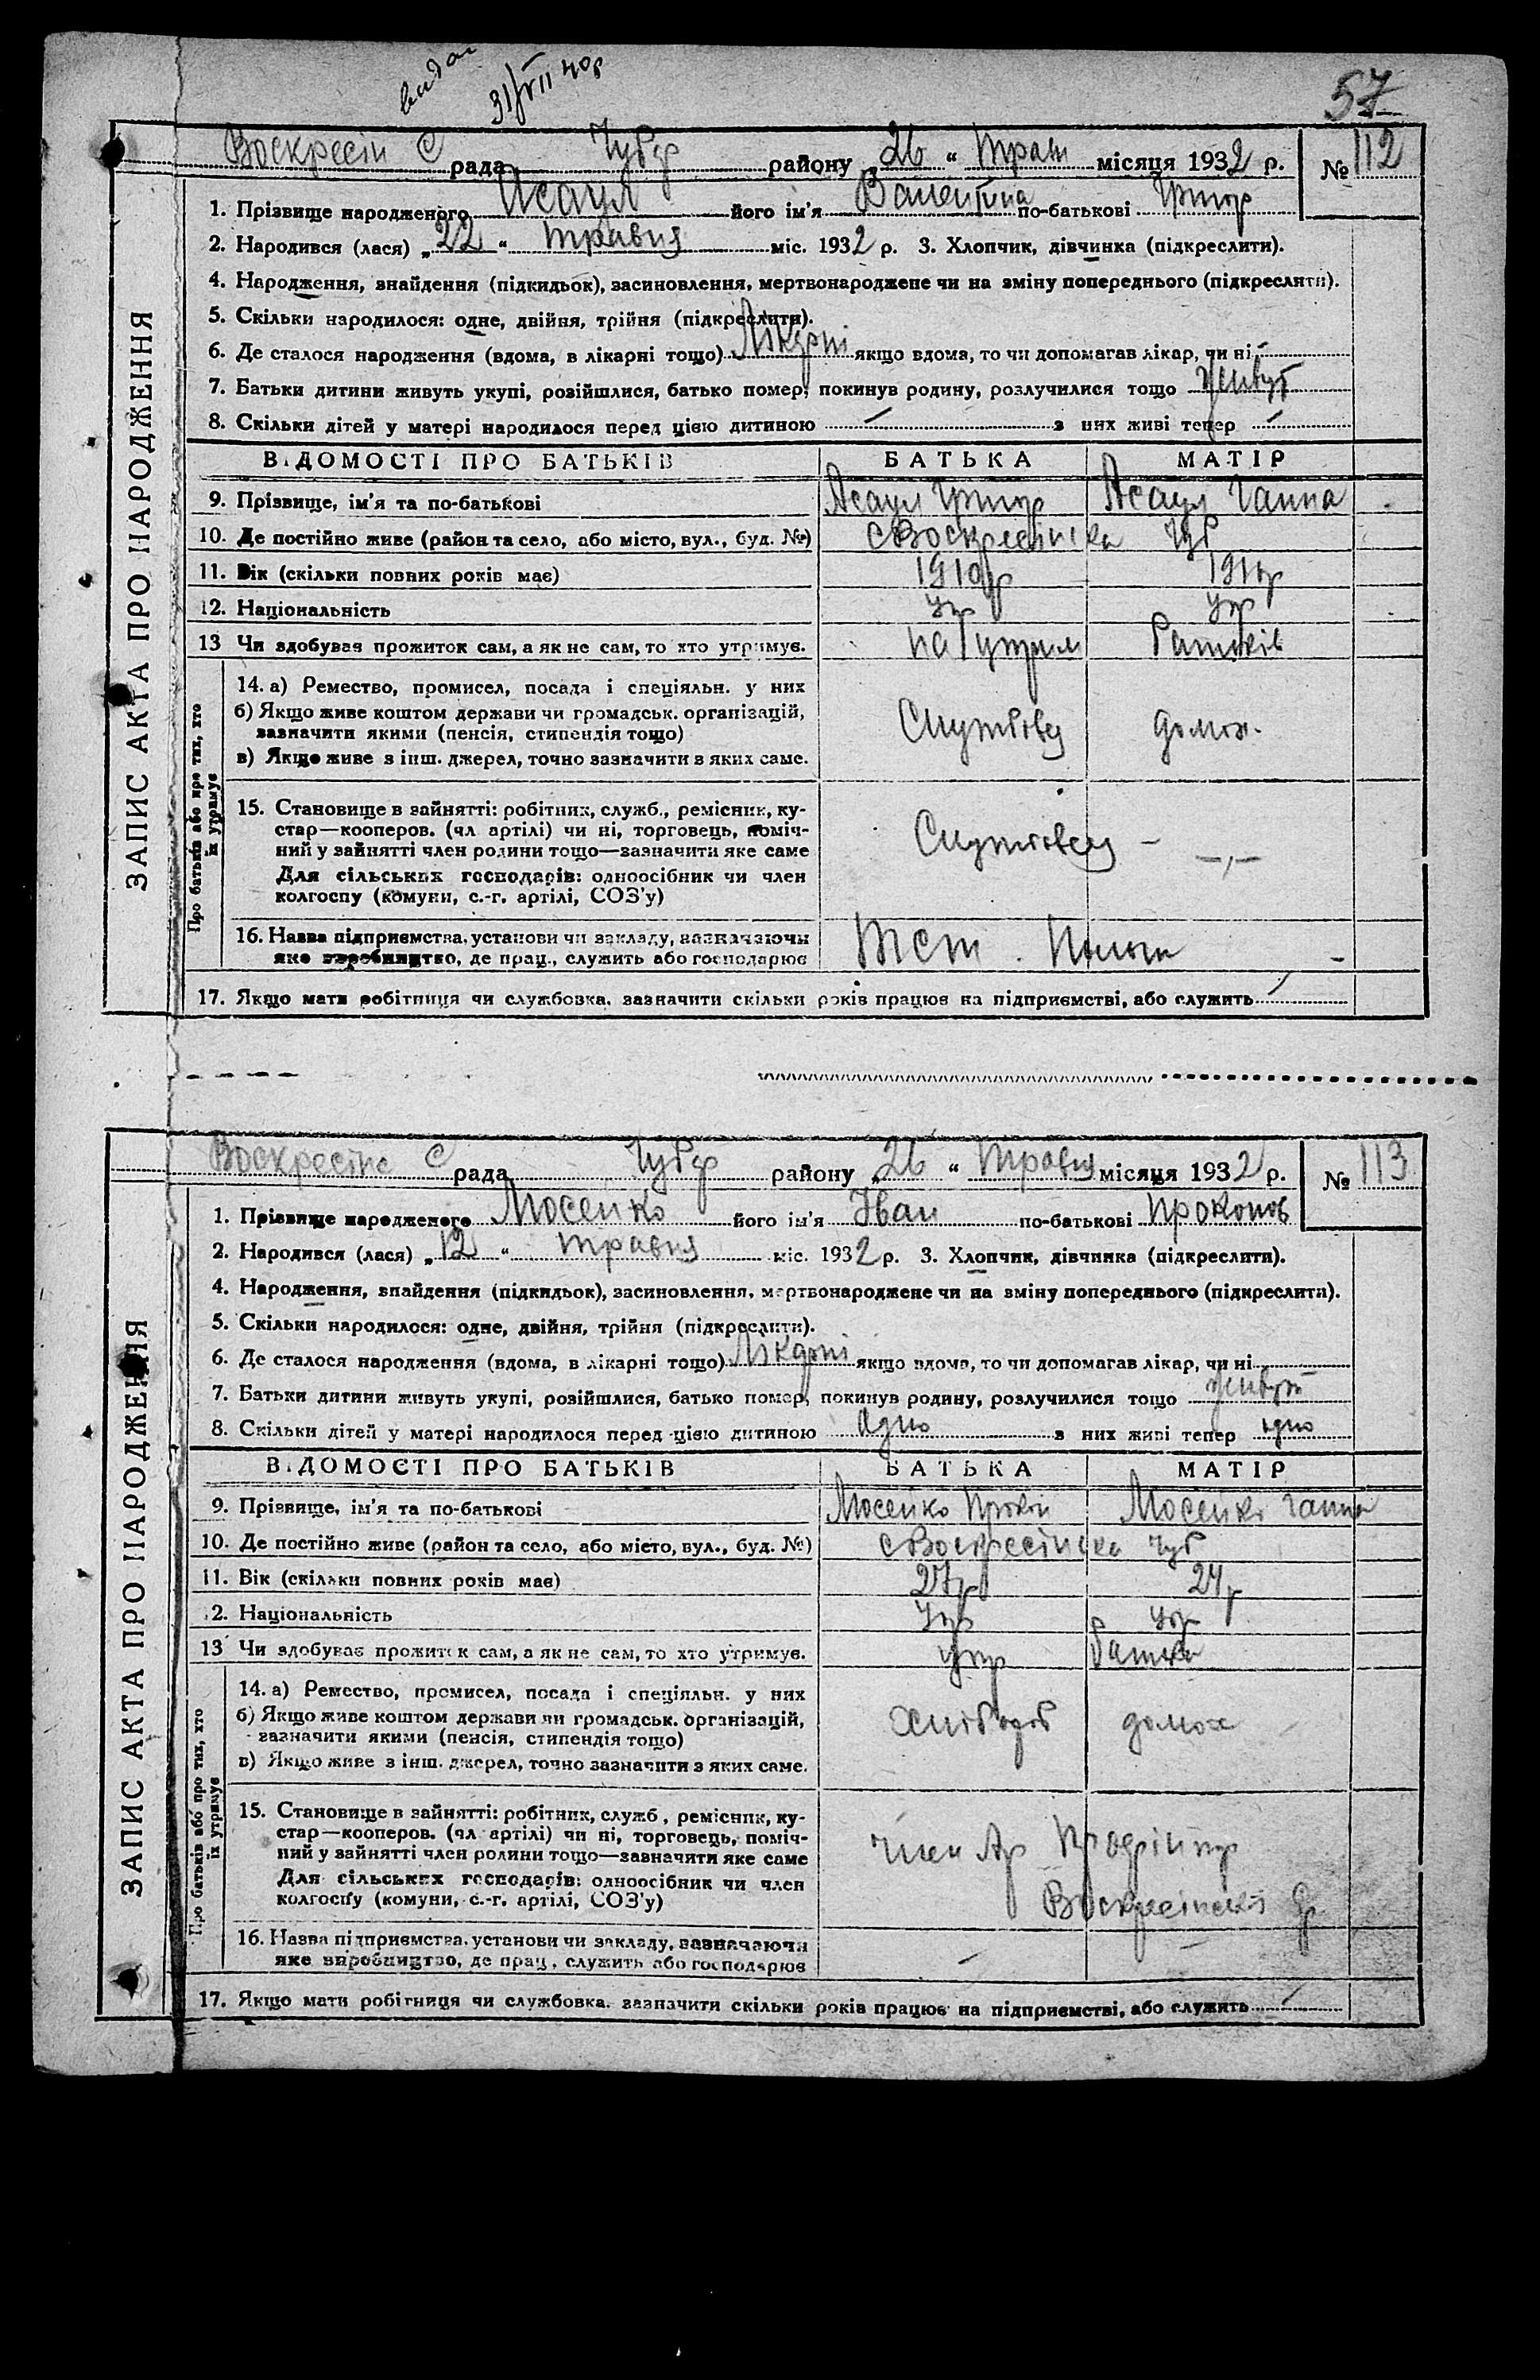 видан
31/VII 40р
57
Воскресін С рада Чубар району 26 " Трав місяця 1932 р. № 112
1. Прізвище народженого Асаул його ім'я Валентина по-батькові Григор
2. Народився (лася) „22" травня міс. 1932 р. 3. Хлопчик, дівчинка (підкреслити).
4. Народження, знайдення (підкидьок), засиновлення, мертвонароджене чи на зміну попереднього (підкреслити).
5. Скільки народилося: одне, двійня, трійня (підкреслити).
6. Де сталося народження (вдома, в лікарні тощо) Лікарні якщо вдома, то чи допомагав лікар, чи ні
7. Батьки дитини живуть укупі, розійшлися, батько помер, покинув родину, розлучилися тощо живуть
8. Скільки дітей у матері народилося перед цією дитиною — з них живі тепер —
ВІДОМОСТІ ПРО БАТЬКІВ БАТЬКА МАТІР
9. Прізвище, ім'я та по-батькові Асаул Григор Асаул Ганна
10. Де постійно живе (район та село, або місто, вул., буд. №) с Воскресінська Чуб
11. Вік (скільки повних років має) 1910р 1910р
12. Національність Укр Укр
13 Чи здобував прожиток сам, а як не сам, то хто утримує. на утрим Батьків
14. а) Ремество, промисел, посада і спеціяльн. у них
б) Якщо живе коштом держави чи громадськ. організацій,
зазначити якими (пенсія, стипендія тощо) Службовец домох.
в) Якщо живе з інш. джерел, точно зазначити з яких саме.
15. Становище в зайнятті: робітник, служб., ремісник, ку-
стар—кооперов. (чл артілі) чи ні, торговець, поміч-
ний у зайнятті член родини тощо—зазначити яке саме Службовец — —„—
Для сільських господарів: одноосібник чи член
колгоспу (комуни, с.-г. артілі, СОЗ'у)
16. Назва підприємства, установи чи закладу, зазначаючи
яке виробництво, де прац., служить або господарює
17. Якщо мати робітниця чи службовка, зазначити скільки років працює на підприємстві, або служить —
ЗАПИС АКТА ПРО НАРОДЖЕННЯ
Про батьків або про тих, хто їх утримує
Воскресінс С рада Чубар району „26 " Травня місяця 1932 р. № 113
1. Прізвище народженого Мосейко його ім'я Іван по-батькові Проконов
2. Народився (лася) „12 " травня міс. 1932 р. 3. Хлопчик, дівчинка (підкреслити).
4. Народження, знайдення (підкидьок), засиновлення, мертвонароджене чи на зміну попереднього (підкреслити).
5. Скільки народилося: одне, двійня, трійня (підкреслити).
6. Де сталося народження (вдома, в лікарні тощо) Лікарні якщо вдома, то чи допомагав лікар, чи ні
7. Батьки дитини живуть укупі, розійшлися, батько помер, покинув родину, розлучилися тощо живуть
8. Скільки дітей у матері народилося перед цією дитиною одно з них живі тепер одно
ВІДОМОСТІ ПРО БАТЬКІВ БАТЬКА МАТІР
9. Прізвище, ім'я та по-батькові Мосейко Мосейко Ганна
10. Де постійно живе (район та село, або місто, вул., буд. №) с Воскресінська Чуб
11. Вік (скільки повних років має) 27р 24р
12. Національність Укр Укр
13 Чи здобуває прожиток сам, а як не сам, то хто утримує. утр Батька
14. а) Ремество, промисел, посада і спеціяльн. у них
б) Якщо живе коштом держави чи громадськ. організацій,
зазначити якими (пенсія, стипендія тощо) Хлібороб домох
в) Якщо живе з інш. джерел, точно зазначити з яких саме.
15. Становище в зайнятті: робітник, служб, ремісник, ку-
стар—кооперов. (чл артілі) чи ні, торговець, поміч-
ний у зайнятті член родини тощо—зазначити яке саме член Ар Профінтер
Для сільських господарів: одноосібник чи член
колгоспу (комуни, с.-г. артілі, СОЗ'у) Воскресінської
16. Назва підприємства, установи чи закладу, зазначаючи
яке виробництво, де прац., служить або господарює — —
17. Якщо мати робітниця чи службовка, зазначити скільки років працює на підприємстві, або служить —
ЗАПИС АКТА ПРО НАРОДЖЕННЯ
Про батьків або про тих, хто їх утримує